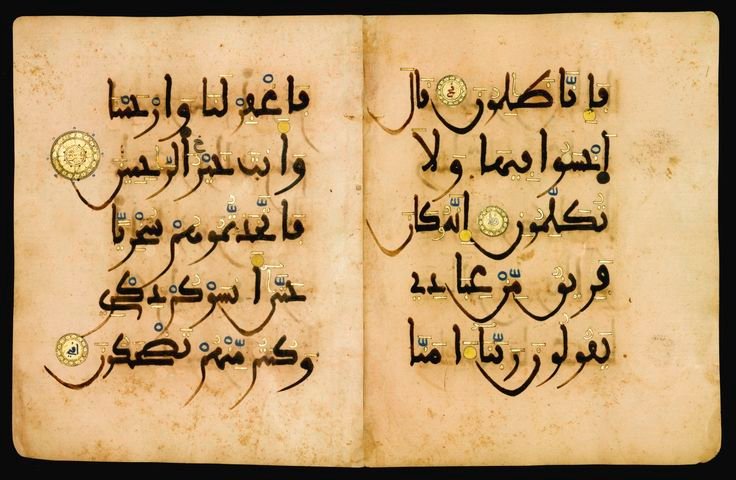 فَإِنَّا ظَٰلِمُونَ قَالَ
اِخْسَـُٔوا فِيهَا وَلَا
تُكَلِّمُونِ إِنَّهُۥ كَانَ
فَرِيقٌ مِّنْ عِبَادِي
يَقُولُونَ رَبَّنَا ءَامَنَّا
فَاغْفِرْ لَنَا وَارْحَمْنَا
وَأَنتَ خَيْرُ الرَّٰحِمِينَ
فَاتَّخَذتُّمُوهُمْ سُخْرِيًّا
حَتَّىٰ أَنسَوْكُمْ ذِكْرِي
وَكُنتُم مِّنْهُمْ تَضْحَكُونَ